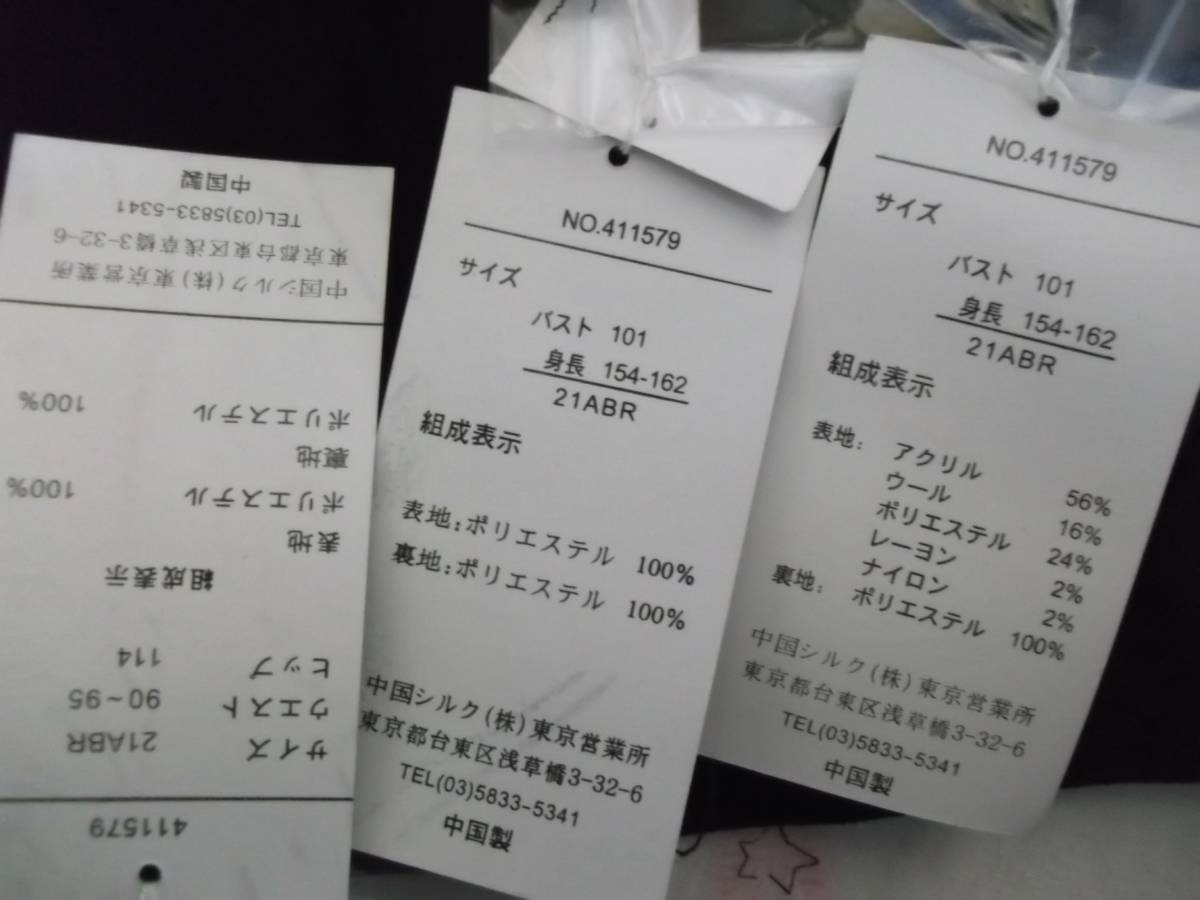 411579
サイズ 21ABR
ウエスト 90~95
ヒップ 114
組成表示
表地
ポリエステル 100%
裏地
ポリエステル 100%
中国シルク(株)東京営業所
東京都台東区浅草橋3-32-6
TEL(03)5833-5341
中国製
NO.411579
サイズ
バスト 101
身長 154-162
21ABR
組成表示
表地:ポリエステル 100%
裏地:ポリエステル 100%
中国シルク(株)東京営業所
東京都台東区浅草橋3-32-6
TEL(03)5833-5341
中国製
NO.411579
サイズ
バスト 101
身長 154-162
21ABR
組成表示
表地: アクリル 56%
ウール 16%
ポリエステル 24%
レーヨン 2%
ナイロン 2%
裏地: ポリエステル 100%
中国シルク(株)東京営業所
東京都台東区浅草橋3-32-6
TEL(03)5833-5341
中国製